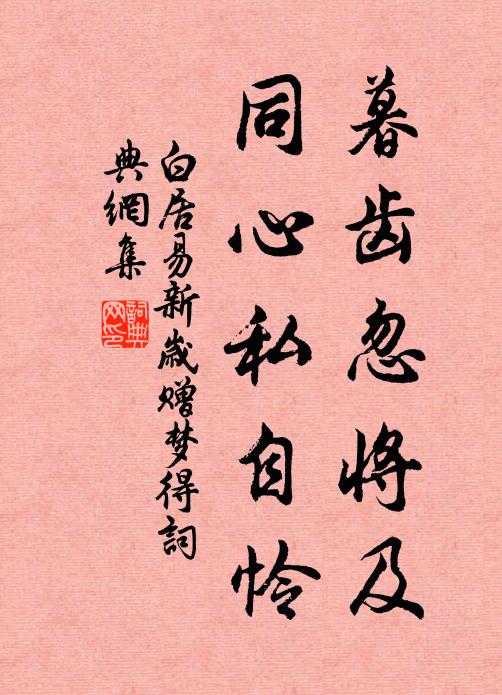 暮齿忽将及
同心私自怜
白居易新歲赠梦得詞
典網集
詞典
网印